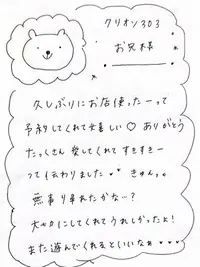 クリオン303
お兄様
久しぶりにお店使ったーって
予約してくれて嬉しい♡ ありがとう
たっくさん 愛してくれて すきすきー
って伝わりました♥♥ きゅっ。
無事り帰れたかな…?
大切にしてくれてうれしかったよ!
また遊んでくれるといいなぁ♥♥♥